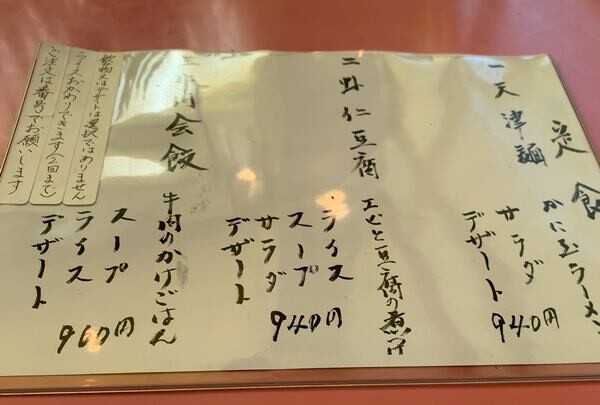 定食
一 天津麺
かに玉ラーメン
サラダ
デザート
940円
二 虾仁豆腐
エビと豆腐の煮
ライス
スープ
サラダ
デザート
940円
会飯
牛肉のかけごはん
スープ
ライス
デザート
960円
飲物又はデザートは選択ではありません
ライスおかわりできます(2回まで)
ご注文は番号でお願いします